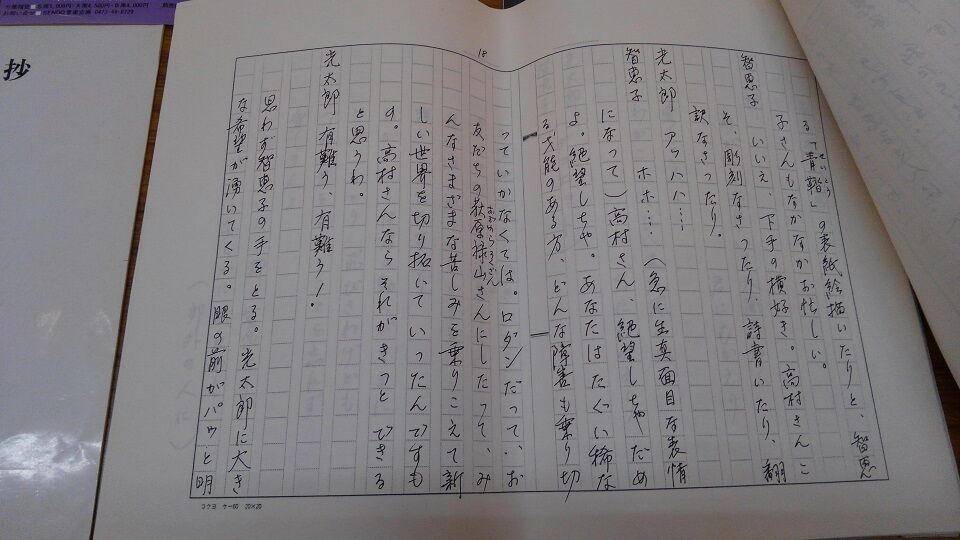 る「青鞜」の表紙絵描いたりと、智恵
せいとう
子さんもなかなかお忙しい。
智恵子 いいえ、下手の横好き。高村さんこ
そ、彫刻なさったり、詩書いたり、翻
訳なさったり。
光太郎 アッハハ…
智恵子 ホホ…(急に生真面目な表情
になって)高村さん、絶望しちゃだめ
よ。絶望しちゃ。あなたはたぐい稀な
る才能のある方、どんな障害も乗り切
18
っていかなくては。ロダンだって、お
友だちの荻原碌山さんにしたって、み
おぎわらろくざん
んなさまざまな苦しみを乗りこえて新
しい世界を切り拓いていったんですも
の。高村さんならそれがきっとできる
と思うわ。
光太郎 有難う、有難う!
思わず智恵子の手をとる。光太郎に大き
な希望が湧いてくる。眼の前がパッと明
コクヨ ケー60 20×20
抄